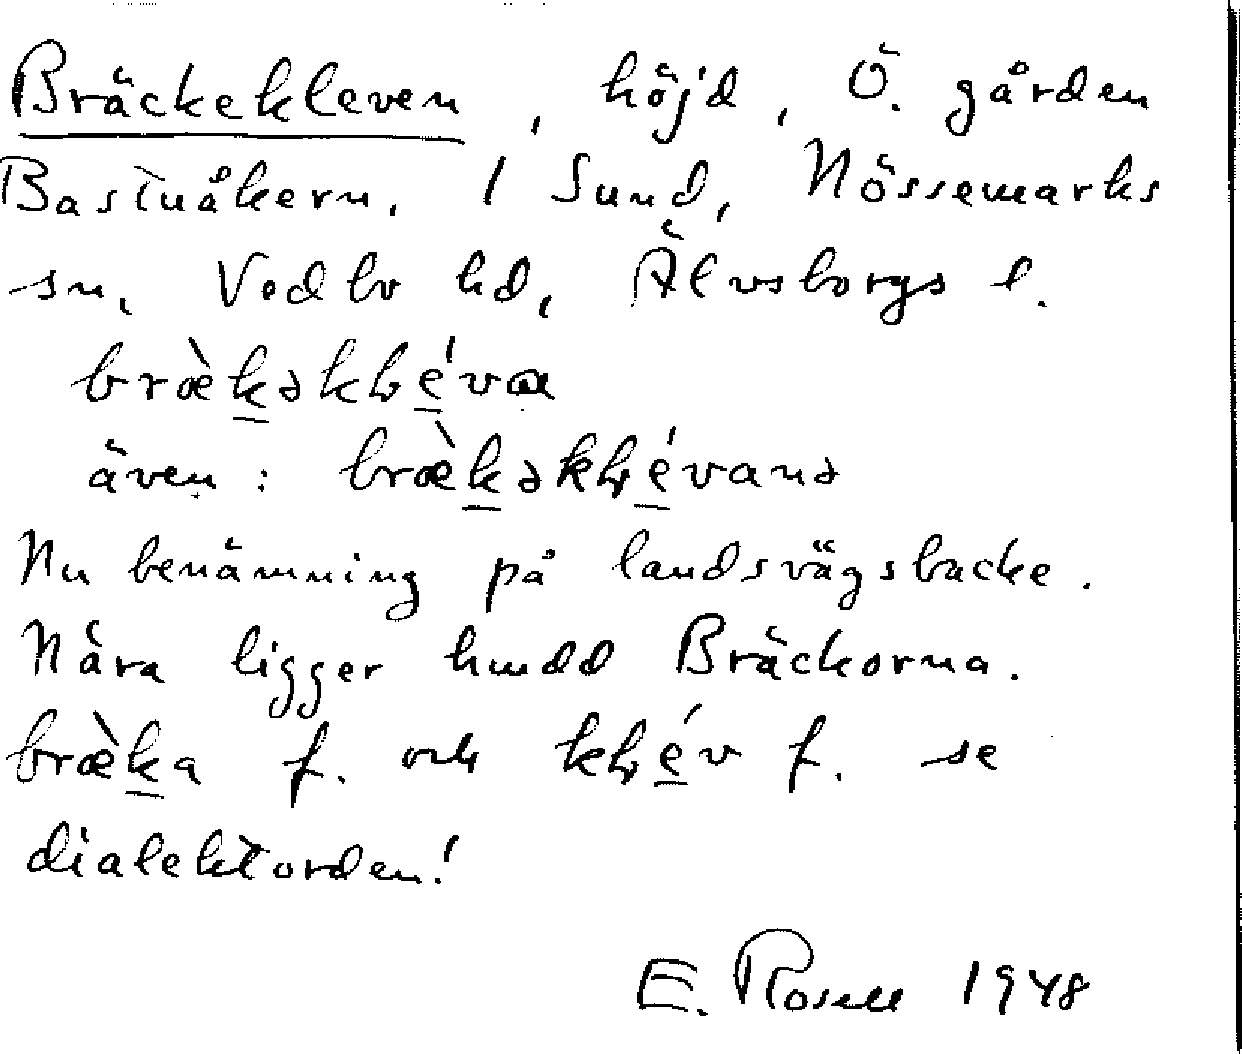 Bräckekleven, höjd, Ö. gården
Bastuåkern, 1 Sund, Nössemarks
sn, Vedbo hd, Älvsborgs l.
bræ̀kəkɫéva
även: bræ̀kəkɫévanə
Nu benämning på landsvägsbacke.
Nära ligger hmdd Bräckorna.
bræ̀ka f. och kɫév f. se
dialektorden!
E. Rosell 1948